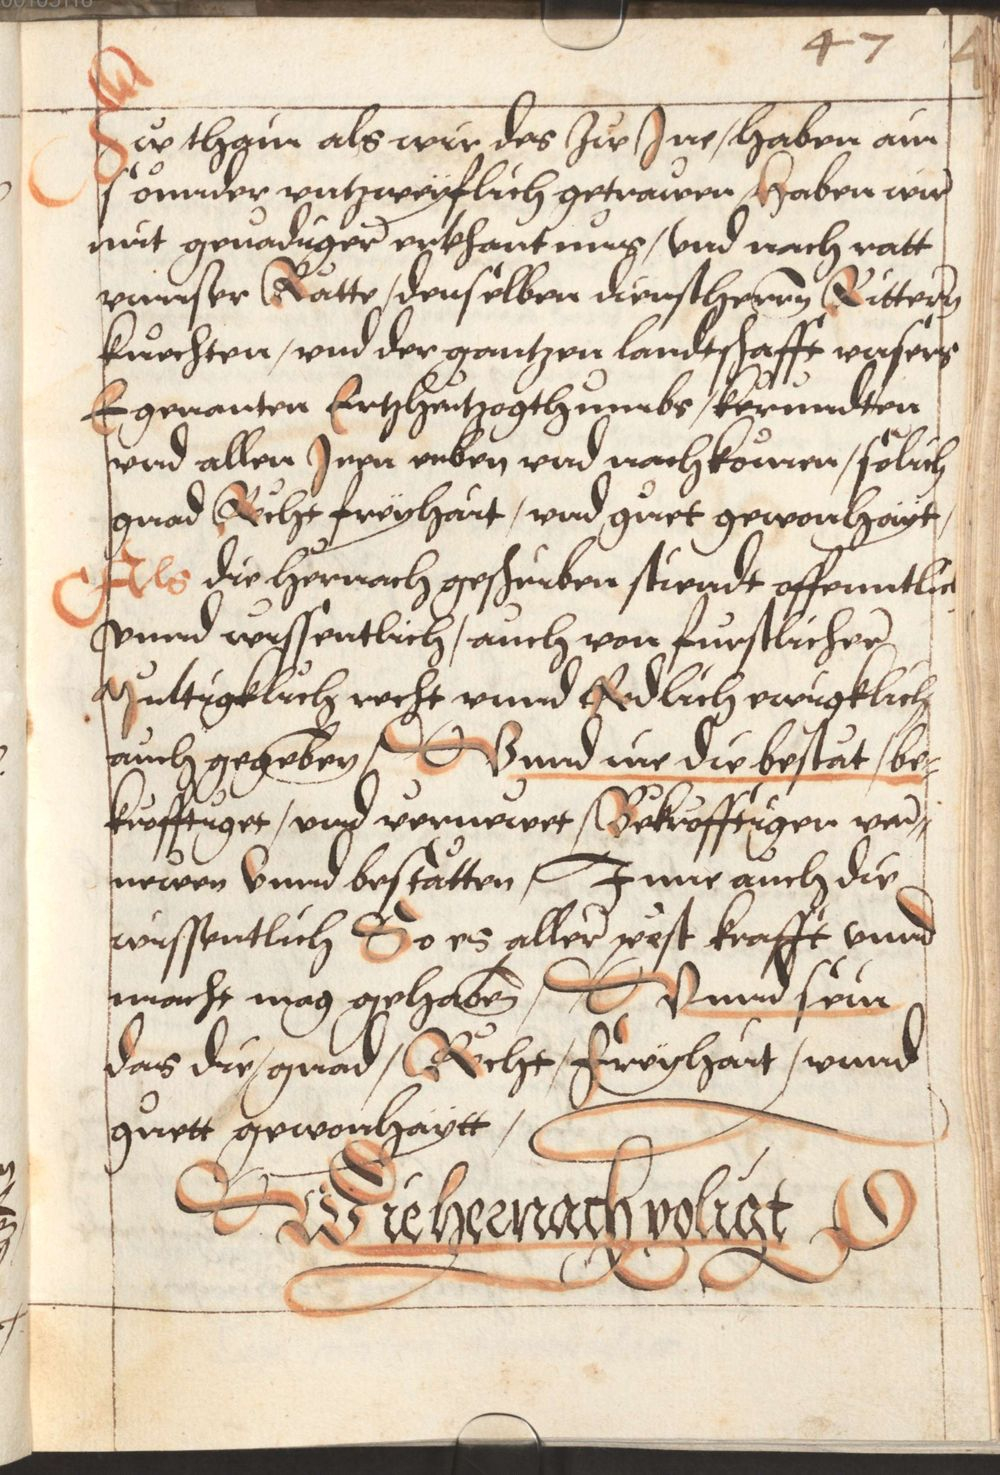 47
Zw thain als wir des Zw Ine / haben ain
sonnder vntzweyflich getrawen / Haben wir
mit genadiger erkhantnus / vnd nach ratt
vnnser Rätte / denselben diensstherrn Rittern
knechten / vnd der gantzen landtschafft vnsers
Egenanten Ertzhertzogthumbs / kärnndten
vnd allen Iren erben vnd nachkomen / sölich
gnad Recht freyhait / vnd guet gewonhayt /
Als die hernach geschriben stiendt offenntlich
vnnd wissentlich / auch von furstlicher
Miltigklich recht vnnd Redlich ewigklich
auch gegeben / Vnnd ine die bestät / be=
krefftiget / vnd vernewet / Bekrefftigen ver=
newen vnnd bestätten / Inne auch die
wissentlich So es aller pest krafft vnnd
macht mag gehaben / Vnnd sein
das die / gnad / Recht / freyhait / vnnd
guett gewonhaytt /
Wie hernach voligt